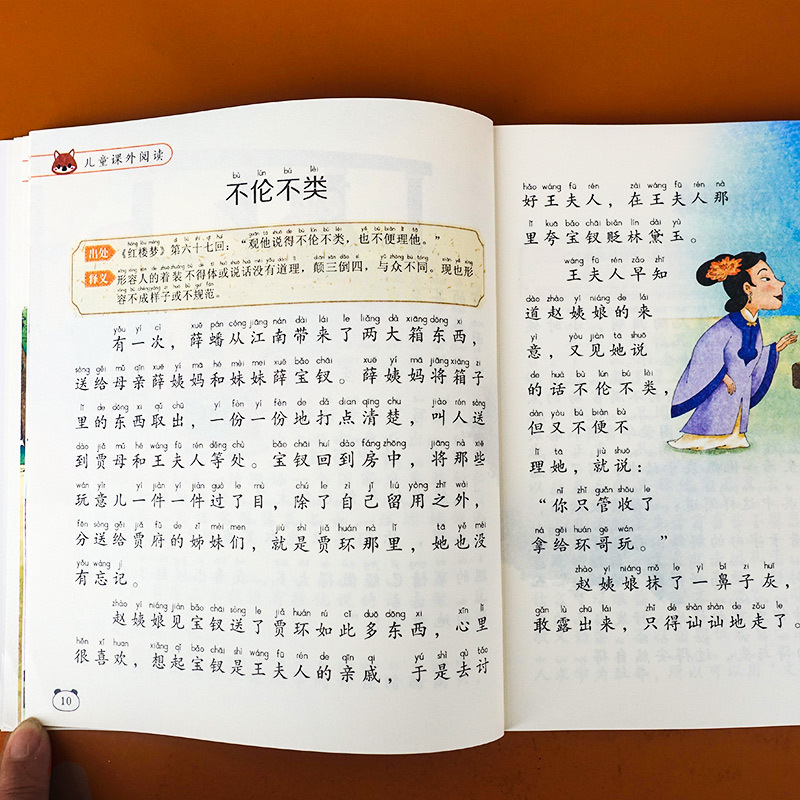 儿童课外阅读
bù lún bú lèi
不伦不类
出处 《红楼梦》第六十七回：“观他说得不伦不类，也不便理他。”
释义 形容人的着装不得体或说话没有道理，颠三倒四，与众不同。现也形
容不成样子或不规范。
yǒu yí cì xuē pān cóng jiāng nán dài lái le liǎng dà xiāng dōng xi
有一次，薛蟠从江南带来了两大箱东西，
sòng gěi mǔ qīn xuē yí mā hé mèi mei xuē bǎo chāi xuē yí mā jiāng xiāng zi
送给母亲薛姨妈和妹妹薛宝钗。薛姨妈将箱子
lǐ de dōng xi qǔ chū yí fèn yí fèn de dǎ dian qīng chu jiào rén sòng
里的东西取出，一份一份地打点清楚，叫人送
dào jiǎ mǔ hé wáng fū rén děng chù bǎo chāi huí dào fáng zhōng jiāng nà xiē
到贾母和王夫人等处。宝钗回到房中，将那些
wán yìr yí jiàn yí jiàn guò le mù chú le zì jǐ liú yòng zhī wài
玩意儿一件一件过了目，除了自己留用之外，
fēn sòng gěi jiǎ fǔ de zǐ mèi men jiù shì jiǎ huán nà lǐ tā yě méi
分送给贾府的姊妹们，就是贾环那里，她也没
yǒu wàng jì
有忘记。
zhào yí niáng jiàn bǎo chāi sòng le jiǎ huán rú cǐ duō dōng xi xīn lǐ
赵姨娘见宝钗送了贾环如此多东西，心里
hěn xǐ huan xiǎng qǐ bǎo chāi shì wáng fū rén de qīn qi yú shì qù tǎo
很喜欢，想起宝钗是王夫人的亲戚，于是去讨
10
hǎo wáng fū rén zài wáng fū rén nà
好王夫人，在王夫人那
lǐ kuā bǎo chāi biǎn lín dài yù
里夸宝钗贬林黛玉。
wáng fū rén zǎo zhī
王夫人早知
dào zhào yí niáng de lái
道赵姨娘的来
yì yòu jiàn tā shuō
意，又见她说
de huà bù lún bú lèi
的话不伦不类，
dàn yòu bú biàn bù
但又不便不
lǐ tā jiù shuō
理她，就说：
nǐ zhǐ guǎn shōu le
“你只管收了
ná gěi huán gē wán
拿给环哥玩。”
zhào yí niáng mǒ le yì bí zi huī
赵姨娘抹了一鼻子灰，
gǎn lù chū lái zhǐ dé shàn shàn de zǒu le
敢露出来，只得讪讪地走了。